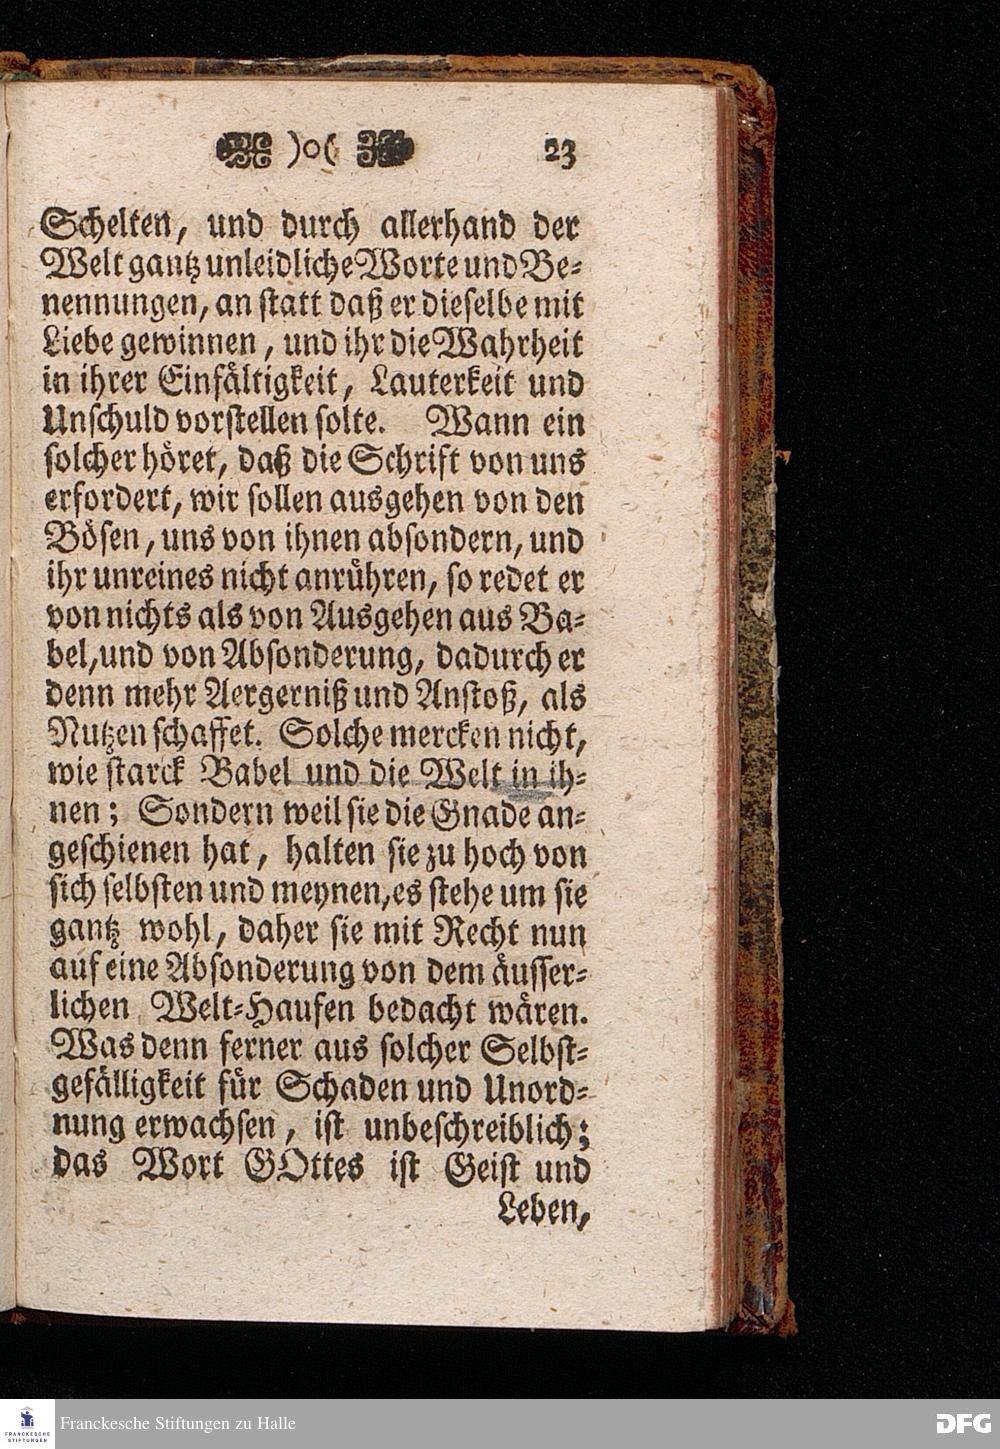 )o( 23
Schelten, und durch allerhand der
Welt gantz unleidliche Worte und Be-
nennungen, an statt daß er dieselbe mit
Liebe gewinnen, und ihr die Wahrheit
in ihrer Einfältigkeit, Lauterkeit und
Unschuld vorstellen solte. Wann ein
solcher höret, daß die Schrift von uns
erfordert, wir sollen ausgehen von den
Bösen, uns von ihnen absondern, und
ihr unreines nicht anrühren, so redet er
von nichts als von Ausgehen aus Ba-
bel, und von Absonderung, dadurch er
denn mehr Aergerniß und Anstoß, als
Nutzen schaffet. Solche mercken nicht,
wie starck Babel und die Welt in ih-
nen; Sondern weil sie die Gnade an-
geschienen hat, halten sie zu hoch von
sich selbsten und meynen, es stehe um sie
gantz wohl, daher sie mit Recht nun
auf eine Absonderung von dem äusser-
lichen Welt-Haufen bedacht wären.
Was denn ferner aus solcher Selbst-
gefälligkeit für Schaden und Unord-
nung erwachsen, ist unbeschreiblich;
das Wort GOttes ist Geist und
Leben,
FRANCKESCHE
STIFTUNGEN
Franckesche Stiftungen zu Halle
DFG